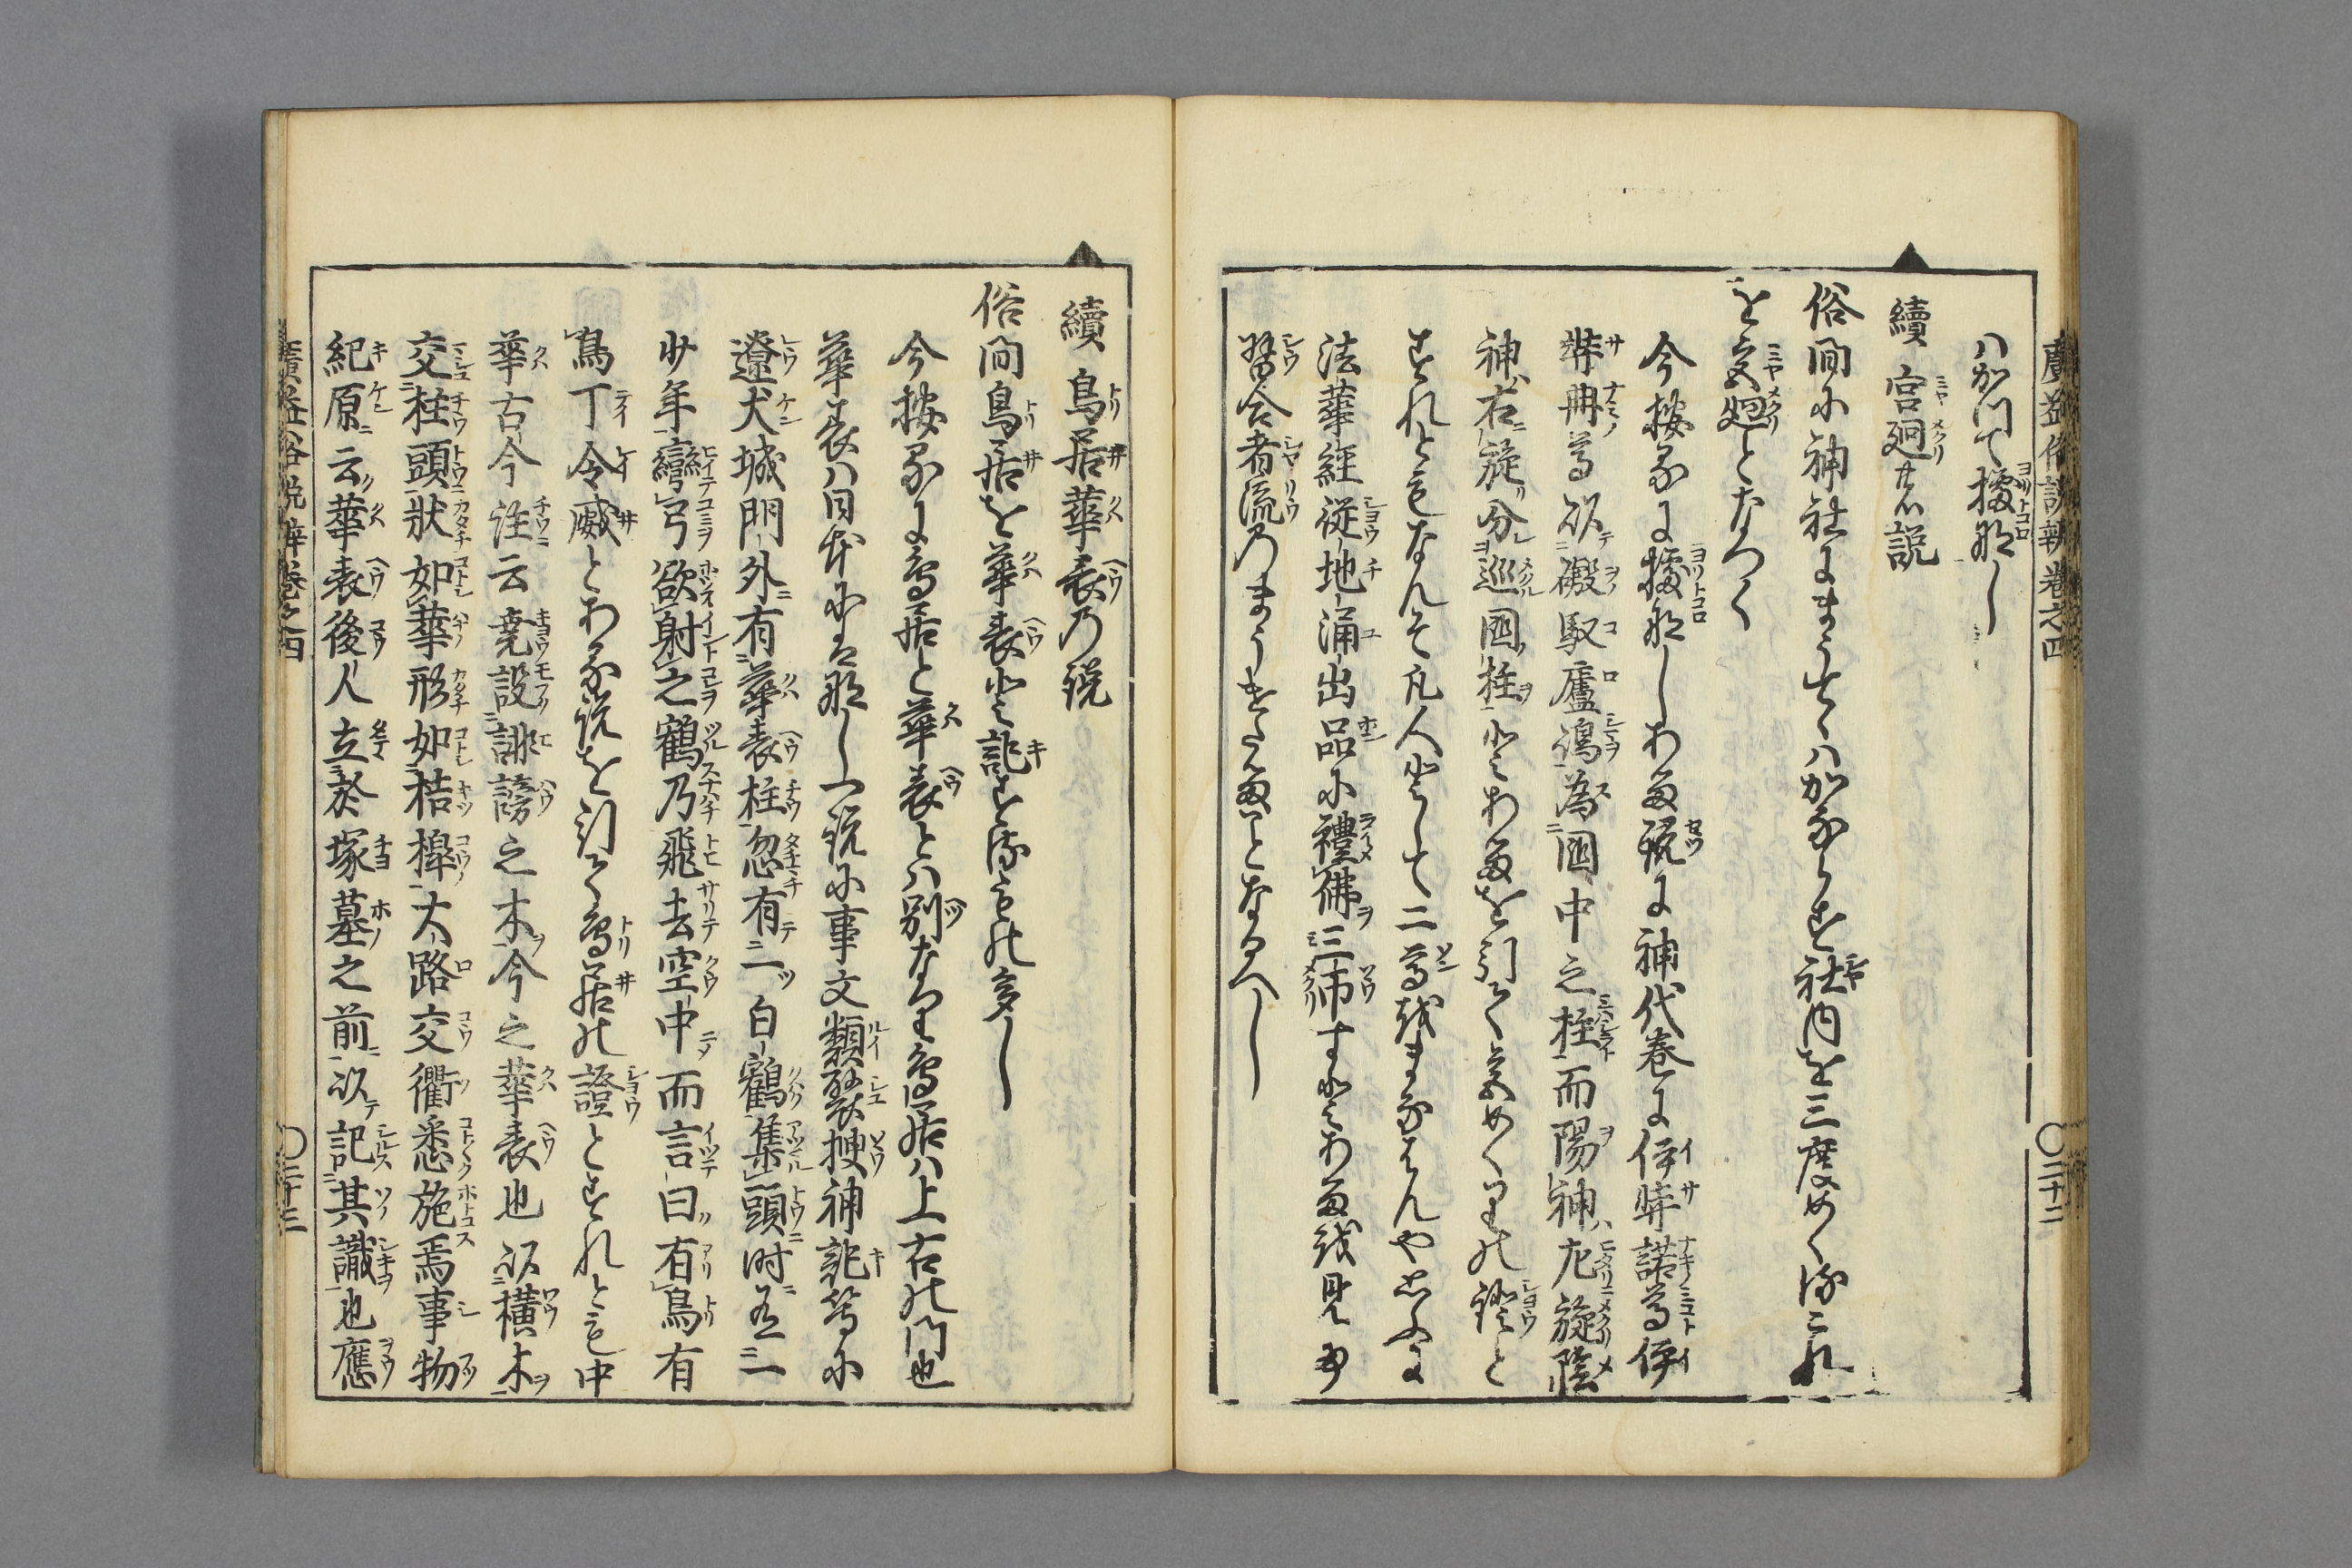 廣益俗説辨卷之四 〇二十二
ハかつて據なし
續 宮廻の説
俗間に神社にまうてハかならす社内を三度めくるこれ
を宮廻となつく
今按るに據なしある説に神代卷に伊弉諾尊伊
弉冊尊以磤馭廬嶋為國中之柱而陽神ハ左旋陰
神ハ右旋分巡國柱とあるを引て宮めくりの證と
すれともなんそ凡人として二尊をまなはんや思ふに
法華經從地涌出品に禮佛三帀すとあるを見て
習合者流のまうけたることなるへし
續 鳥居華表の説
俗間鳥居を華表と記するもの多し
今按るに鳥居と華表とハ別なり鳥居ハ上古の門也
華表ハ日本にはなし一説に事文類聚捜神記等に
遼犬城門外有華表柱忽有二白鶴集頭時有一
少年彎弓欲射之鶴乃飛去空中而言曰有鳥有
鳥丁令威とある説を引て鳥居の證とすれとも中
華古今注云堯設誹謗之木今之華表也以橫木
交柱頭狀如華形如桔槹大路交衢悉施焉事物
紀原云華表後人立於塚墓之前以記其識也應
廣益俗説辨卷之四 〇二十三